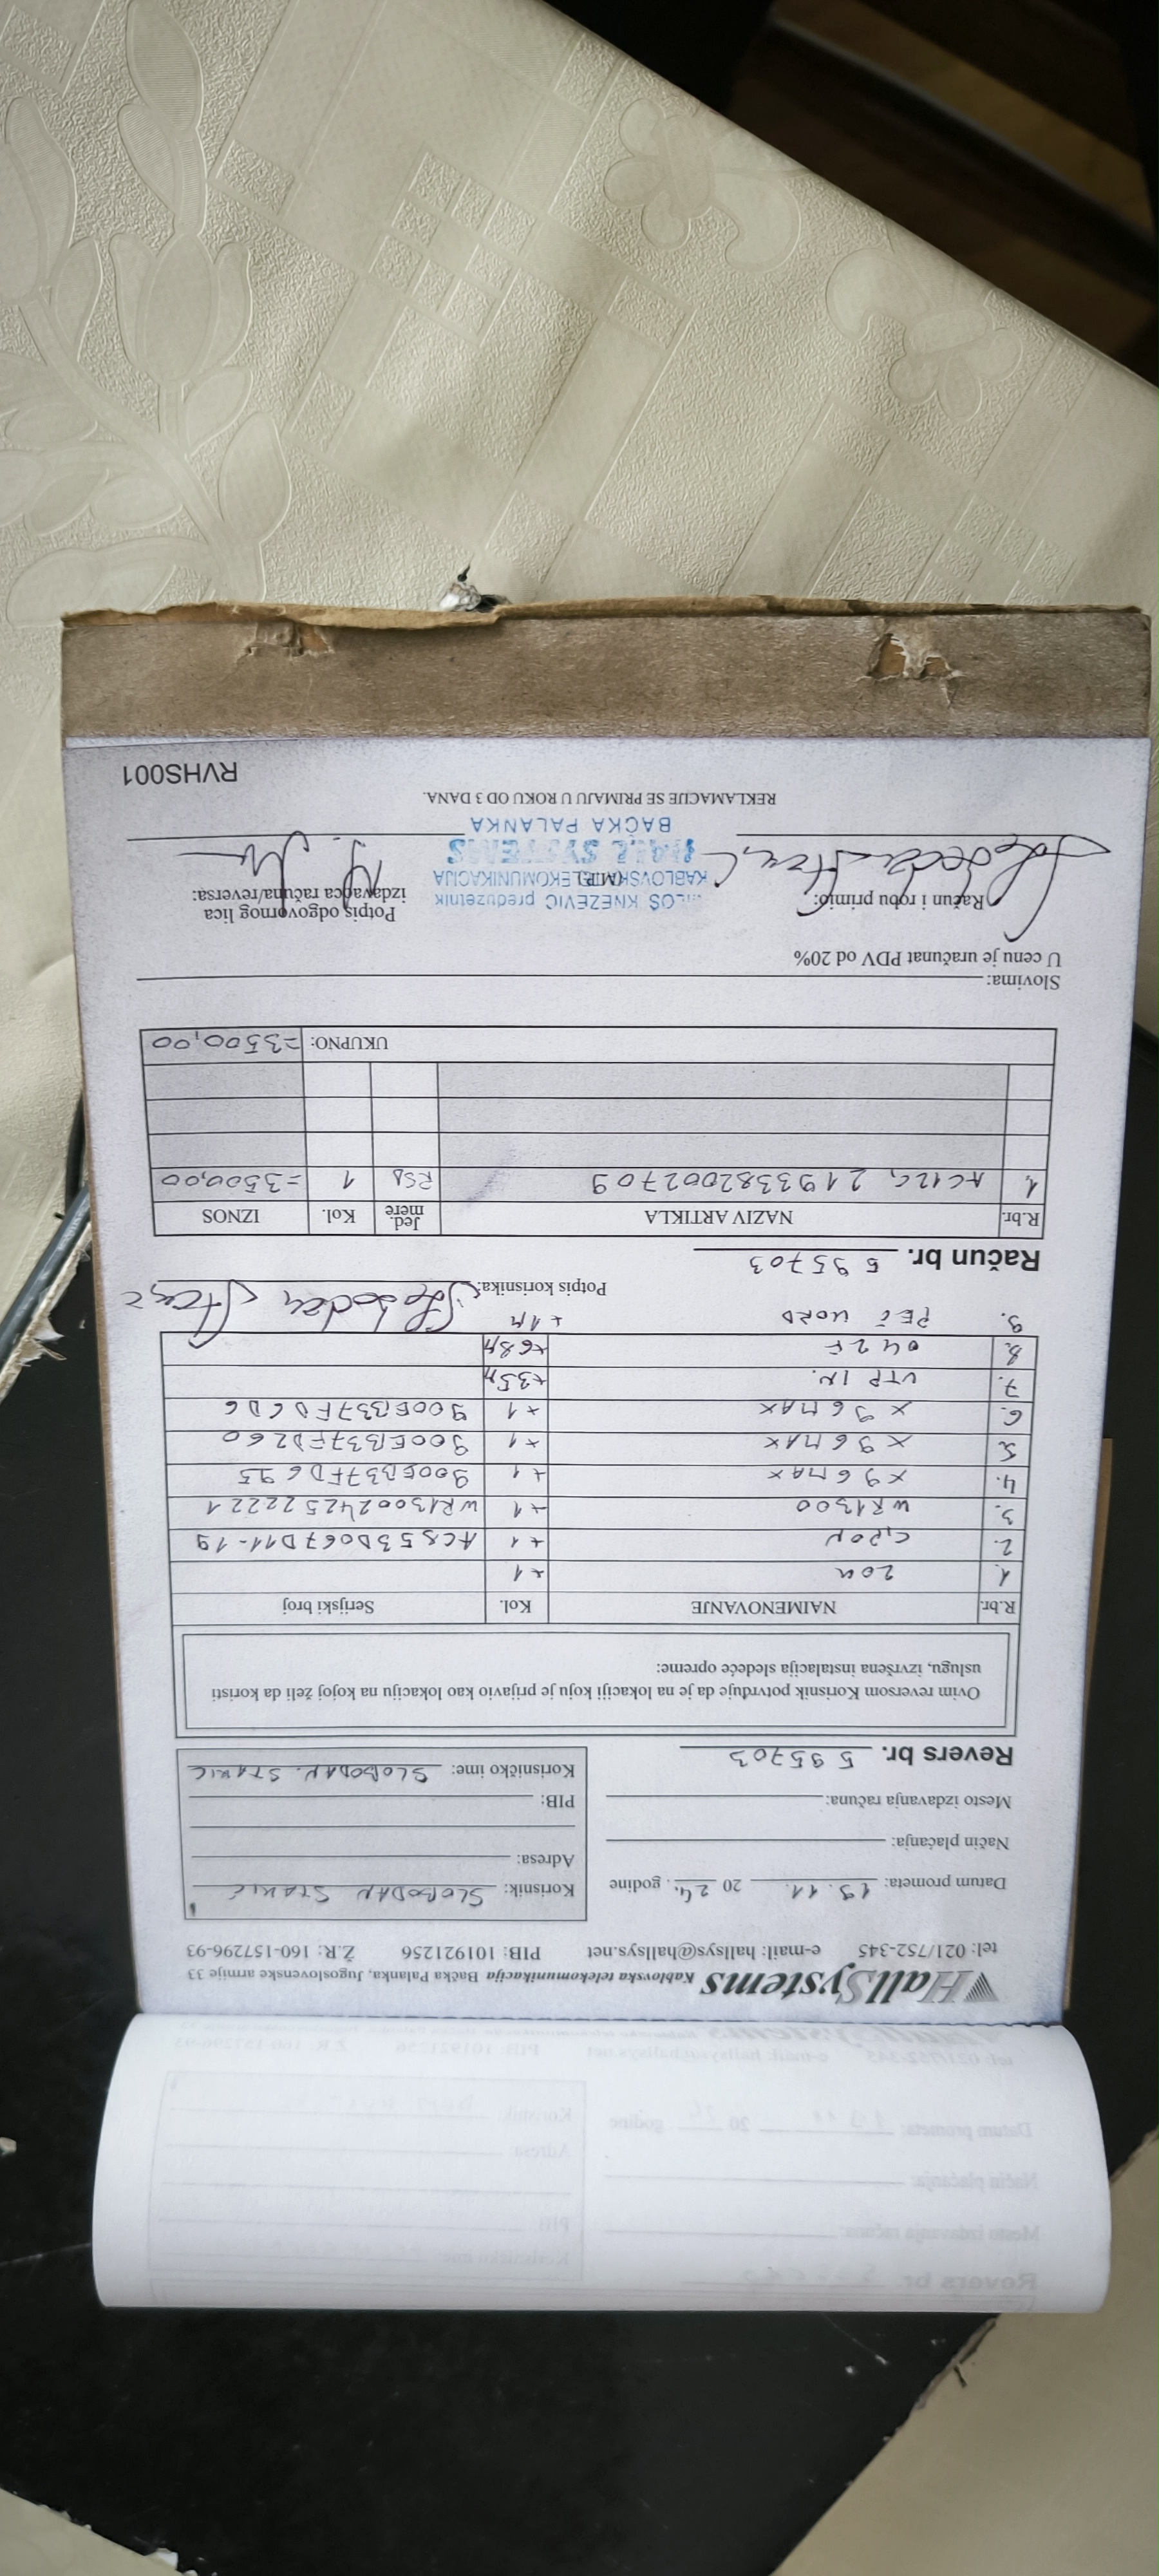 HallSystems Kablovska telekomunikacija Bačka Palanka, Jugoslovenske armije 33
tel: 021/752-345 e-mail: hallsys@hallsys.net PIB: 101921256 Ž.R: 160-157296-93
Datum prometa: 19.11. 20 24. godine
Način plaćanja:
Mesto izdavanja računa:
Korisnik: SLOBODAN STAKIĆ
Adresa:
PIB:
Korisničko ime: SLOBODAN.STAKIC
Revers br. 595703
Ovim reversom Korisnik potvrđuje da je na lokaciji koju je prijavio kao lokaciju na kojoj želi da koristi
uslugu, izvršena instalacija sledeće opreme:
R.br. NAIMENOVANJE Kol. Serijski broj
1. ZON +1
2. +1 AC8S3D067D11-19
3. WR1300 +1 WR1300242522221
4. X96MAX +1 900EB37FD695
5. X96MAX +1 900EB37FD260
6. X96MAX +1 900EB37FD6D6
7. UTP IN. +35M
8. 042F +68M
9. PEČ WORD +1M
Potpis korisnika: Slobodan Stakić
Račun br. 595703
R.br. NAZIV ARTIKLA Jed. mere Kol. IZNOS
1. AC12G, 2193382002709 RSD 1 =3500,00
UKUPNO: =3500,00
Slovima:
U cenu je uračunat PDV od 20%
Račun i robu primio:
(MP)
Potpis odgovornog lica
izdavaoca računa/reversa:
KNEŽEVIĆ preduzetnik
KABLOVSKA TELEKOMUNIKACIJA
HALL SYSTEMS
BAČKA PALANKA
REKLAMACIJE SE PRIMAJU U ROKU OD 3 DANA.
RVHS001